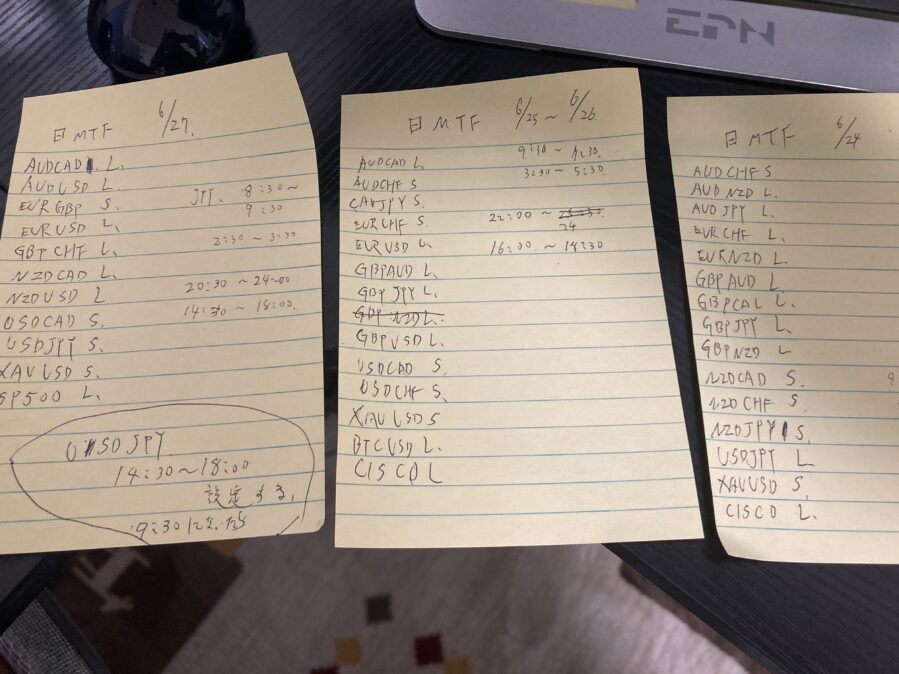 EPN
日 MTF 6/27.
AUDCAD L.
AUDUSD L.
EURGBP S. JPY. 8:30～
EURUSD L. 9:30
GBPCHF L. 2:30～3:30
NZDCAD L.
NZDUSD L 20:30～24:00
USDCAD S. 14:30～18:00.
USDJPY S.
XAUUSD S.
SP500 L.
USDJPY.
14:30～18:00
設定する.
9:30
日 MTF 6/25～6/26
AUDCAD L. 9:30～
AUDCHF S 3:30～5:30.
CADJPY S.
EURCHF S. 22:00～
24
EURUSD L. 16:00.～18:30
GBPAUD L.
GBPJPY L.
GBPNZD L.
GBPUSD L.
USDCAD S.
USDCHF S.
XAUUSD S
BTCUSD L.
CISCO L
日 MTF 6/24
AUDCHF S.
AUDNZD L.
AUDJPY L.
EURCHF L.
EURNZD L
GBPAUD L.
GBPCAD L.
GBPJPY L.
GBPNZD L
NZDCAD S.
NZDCHF S.
NZDJPY S.
USDJPY L
XAUUSD S.
CISCO L.